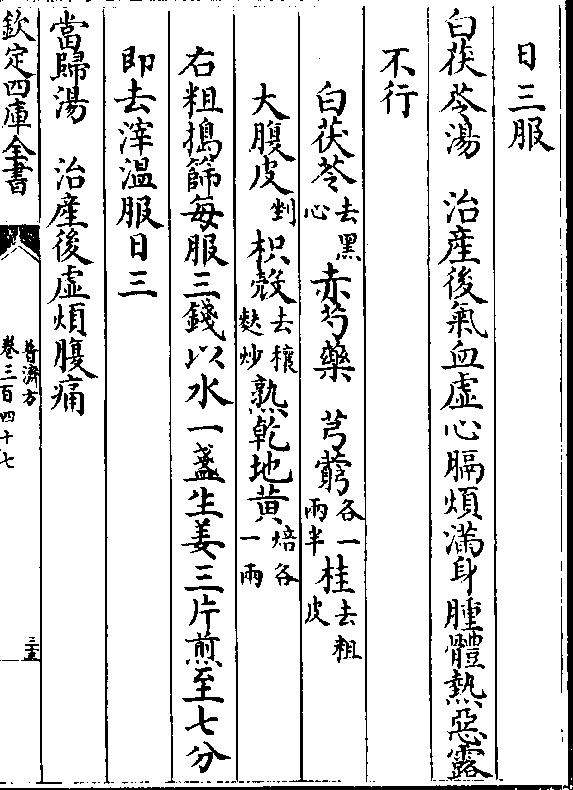 日三服
白茯苓湯　治産後氣血虛心膈煩滿身腫體熱惡露
不行
白茯苓去黑心　赤芍藥　芎藭各一兩半　桂去粗皮
大腹皮剉　枳殻去穰麩炒　熟乾地黄焙各一兩
右粗搗篩每服三錢以水一盞生姜三片煎至七分
即去滓溫服日三
當歸湯　治産後虛煩腹痛
欽定四庫全書　普濟方卷三百四十七　三五